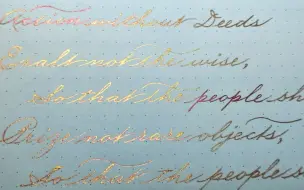 without Deeds
Exalt not the wise,
So that the people sh
Prize not rare objects,
So that the peoples